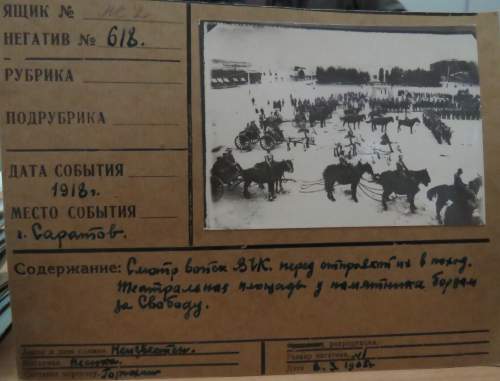 ЯЩИК №
НЕГАТИВ № 618.
РУБРИКА
ПОДРУБРИКА
ДАТА СОБЫТИЯ
1918 г.
МЕСТО СОБЫТИЯ
г. Саратов.
Содержание: Смотр войск ВЧК. перед отправкой их в поход.
Театральная площадь у памятника борцам
за Свободу.
Неизвестен.
Дата 6.X 1968г.